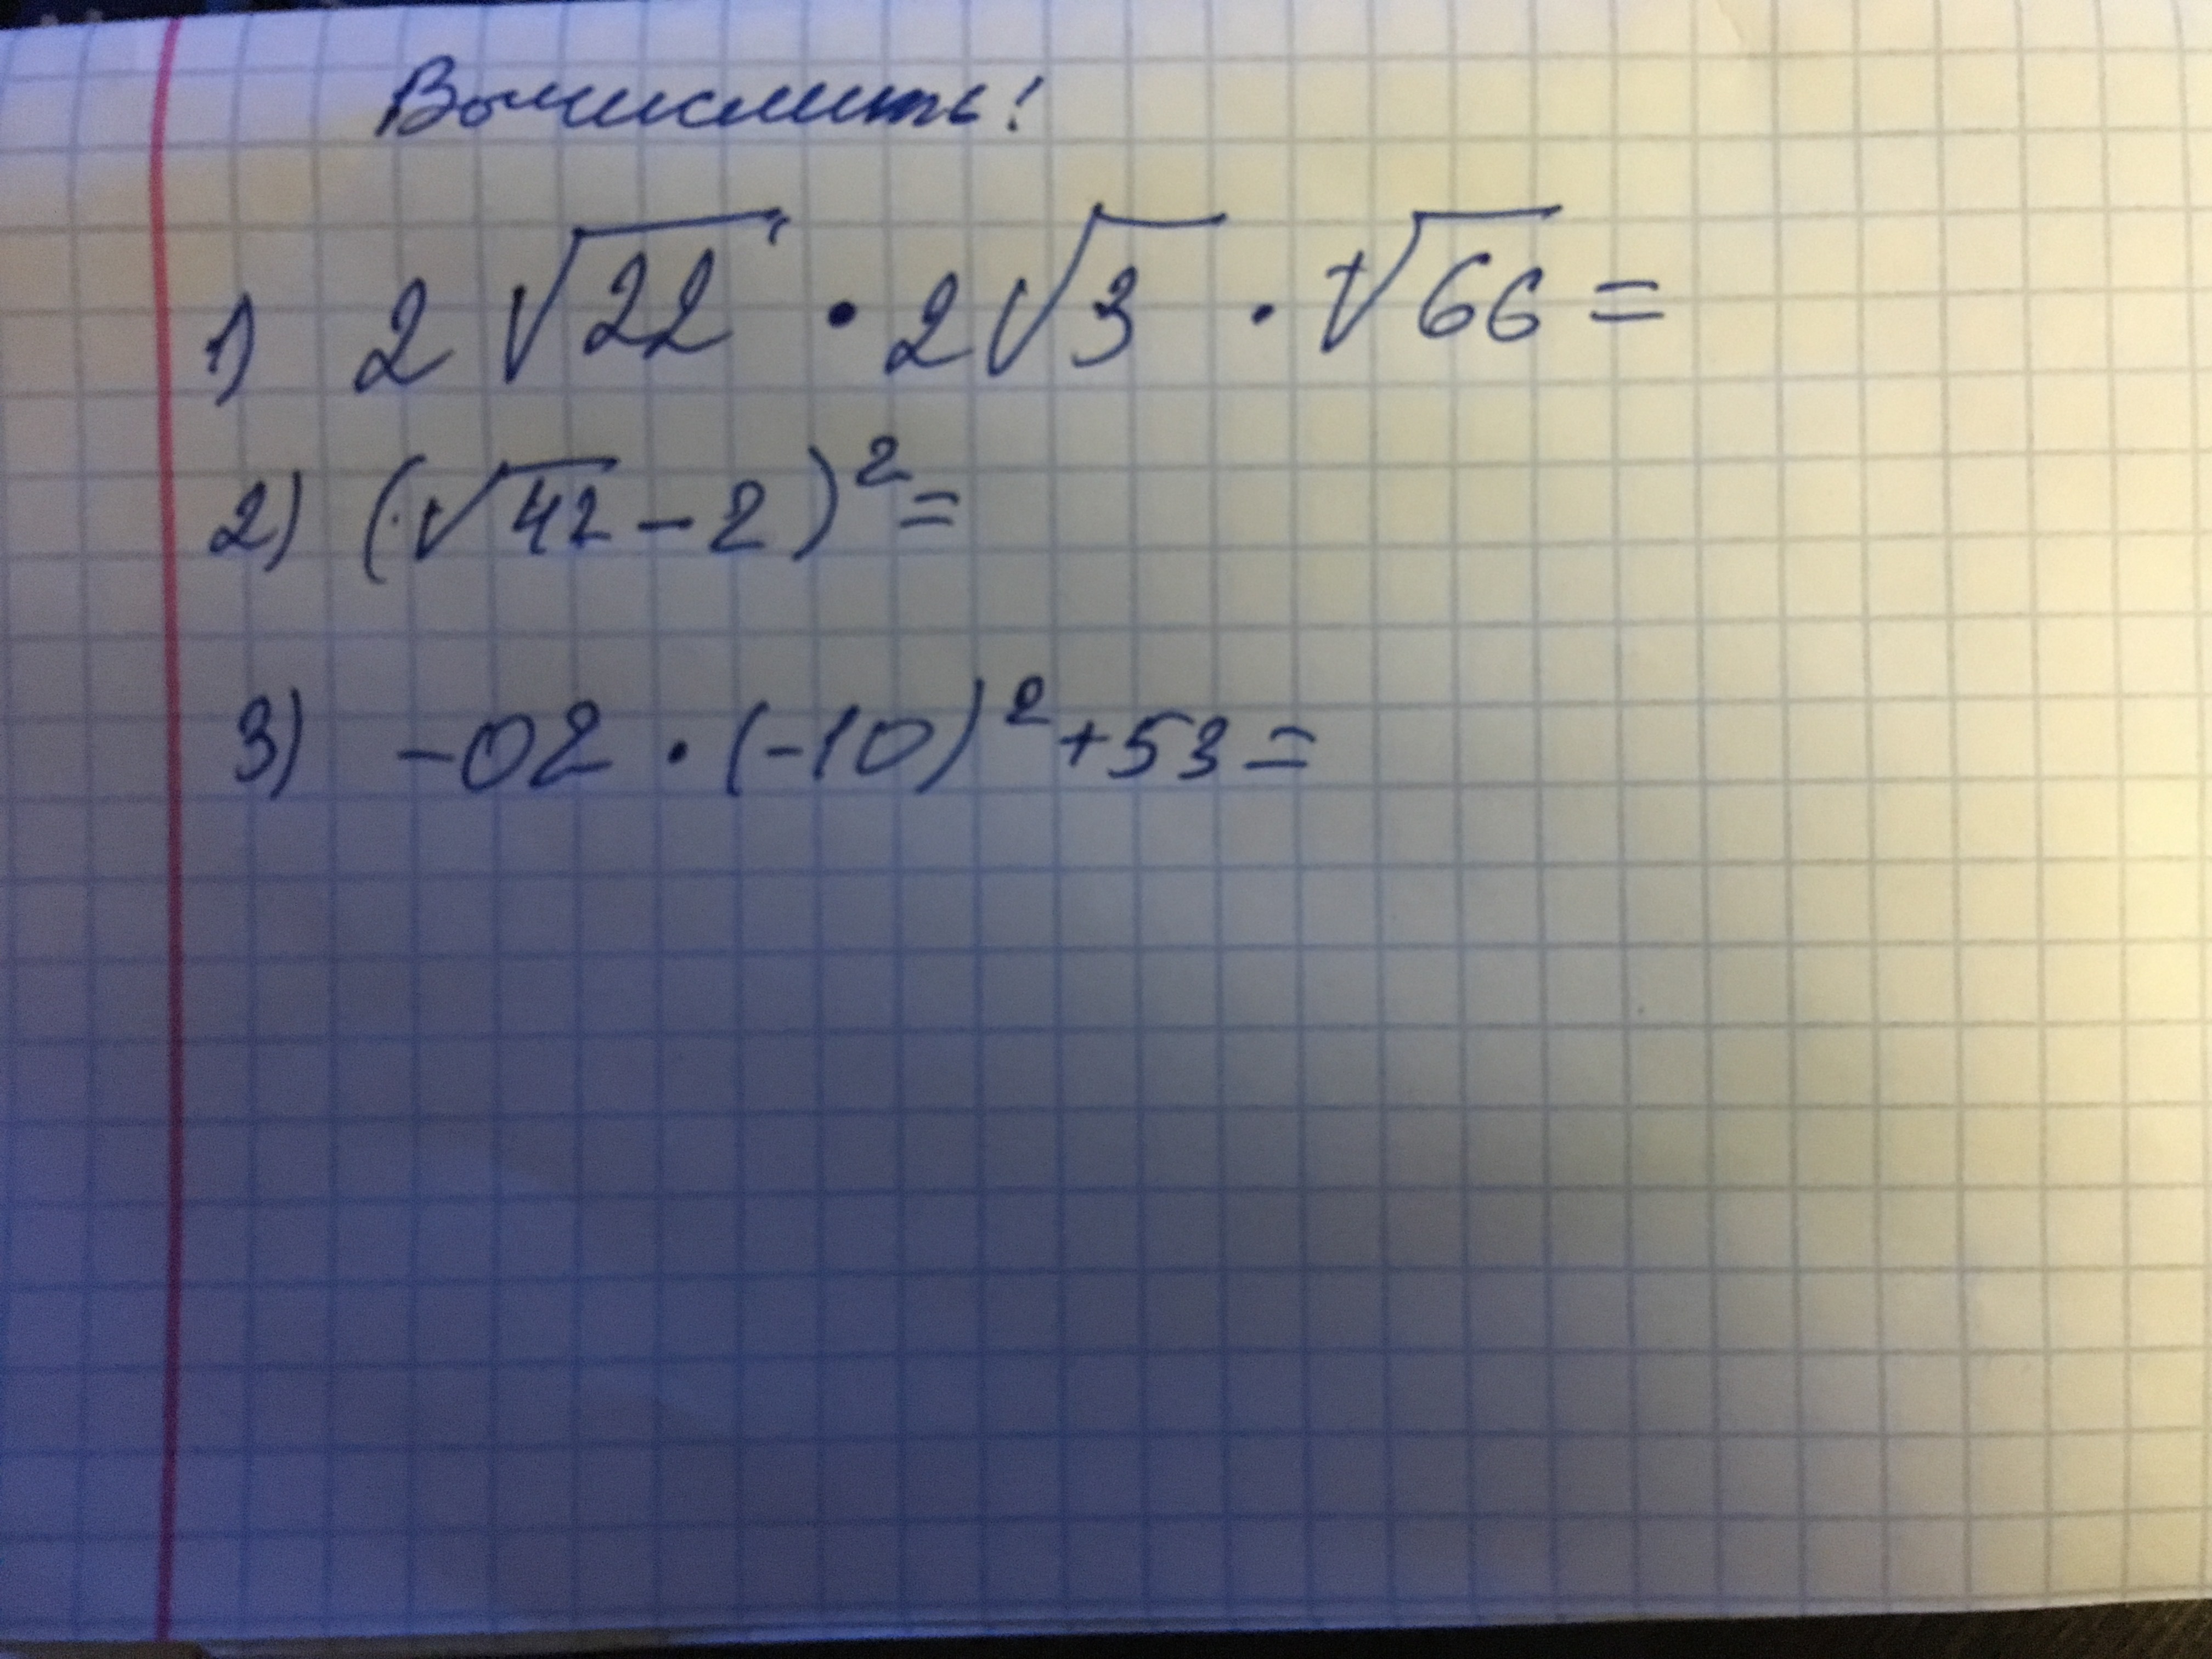 Вычислить!
1) 2√22 · 2√3 · √66 =
2) (√42 - 2)² =
3) -02 · (-10)² + 53 =